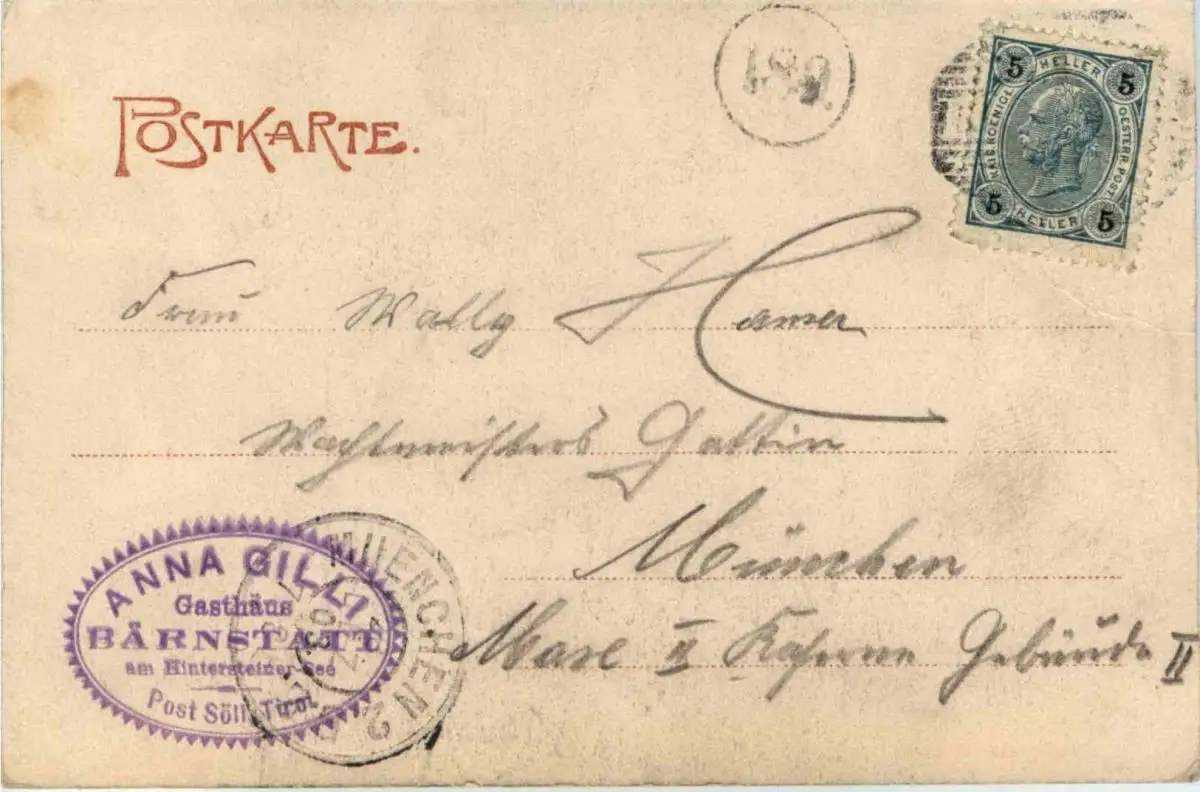 POSTKARTE.
5 HELLER 5
KAIS. KOENIGL. OESTERR. POST.
5 HELLER 5
Frau Wally
Wachtmeisters Gattin
München
Max II Kaserne Gebäude II
ANNA GILLI
Gasthäus
BÄRNSTATT
am Hintersteiner-See
Post Söll, Tirol
MUENCHEN 2